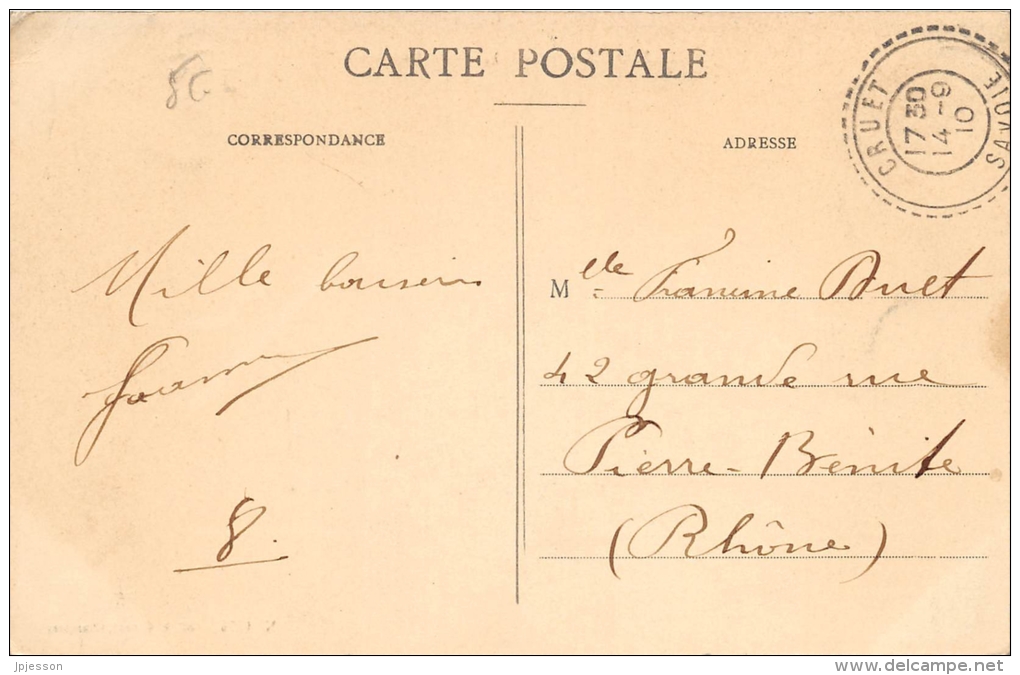 CARTE POSTALE
CORRESPONDANCE
ADRESSE
CRUET
17 30
14 - 9
10
SAVOIE
Mille
8.
Mlle Francine Buet
42 grande rue
Pierre-Bénite
(Rhône)
jpjesson
www.delcampe.net